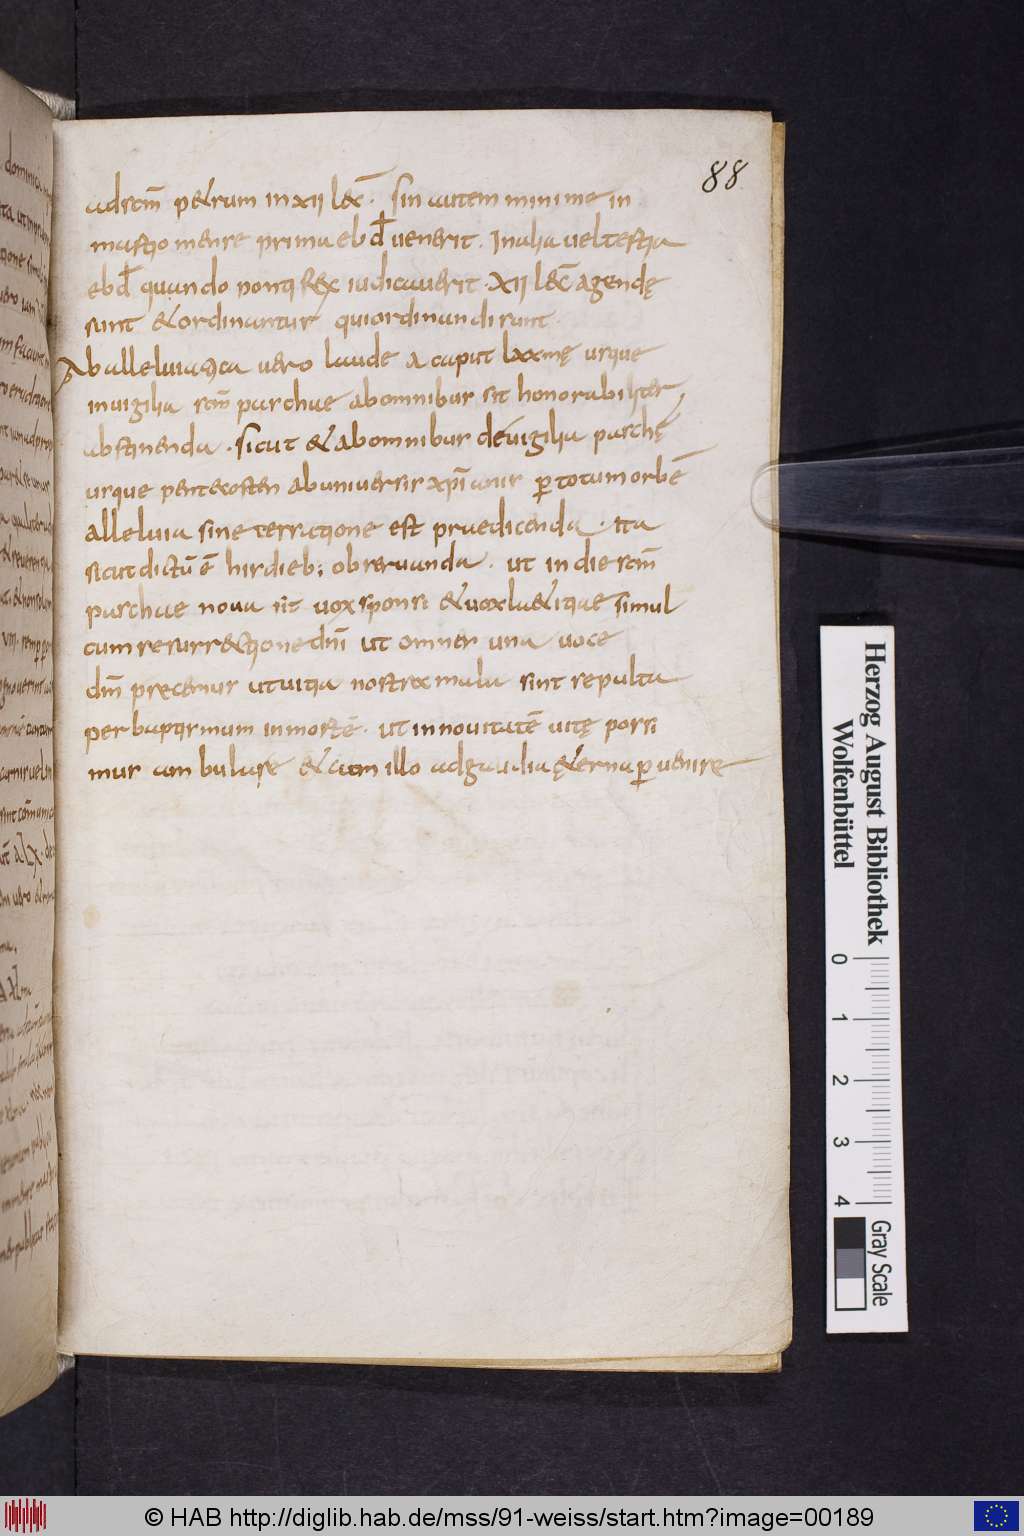 88
adscm̄ petrum in xii lec̄. sin autem minime in
martio mense prima ebd̄ venerit. In alia vel tertia
ebd̄ quando pontifex iudicaverit. xii lec̄ agendę
sunt & ordinantur qui ordinandi sunt.
Ab alleluiatica vero laude a caput lxxmę usque
in vigilia scm̄ paschae ab omnibus sit honorabiliter
abstinenda. sicut & ab omnibus de vigilia paschę
usque pentecosten ab universis xp̄ianis ꝑ totum orbē
alleluia sine cerratione est praedicenda. Ita
sicut dictū ē his dieb; observanda. ut in die scm̄
paschae nova sit vox sponsi & vox laetitiae simul
cum resurrectione dn̄i ut omnes una voce
dn̄m precemur ut vitia nostra mala sint sepulta
per baptismum in mortē. ut in novitatē vitę possi
mus ambulare & cum illo ad gaudia ęterna ꝑvenire
Herzog August Bibliothek
Wolfenbüttel
0 1 2 3 4
Gray Scale
© HAB http://diglib.hab.de/mss/91-weiss/start.htm?image=00189